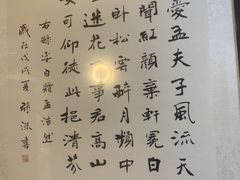 愛孟夫子風流天
聞紅顏棄軒冕白
卧松雲醉月頻中
迷花不事君高山
可仰徒此挹清芬
右錄李白贈孟浩然
歲在戊戌夏書